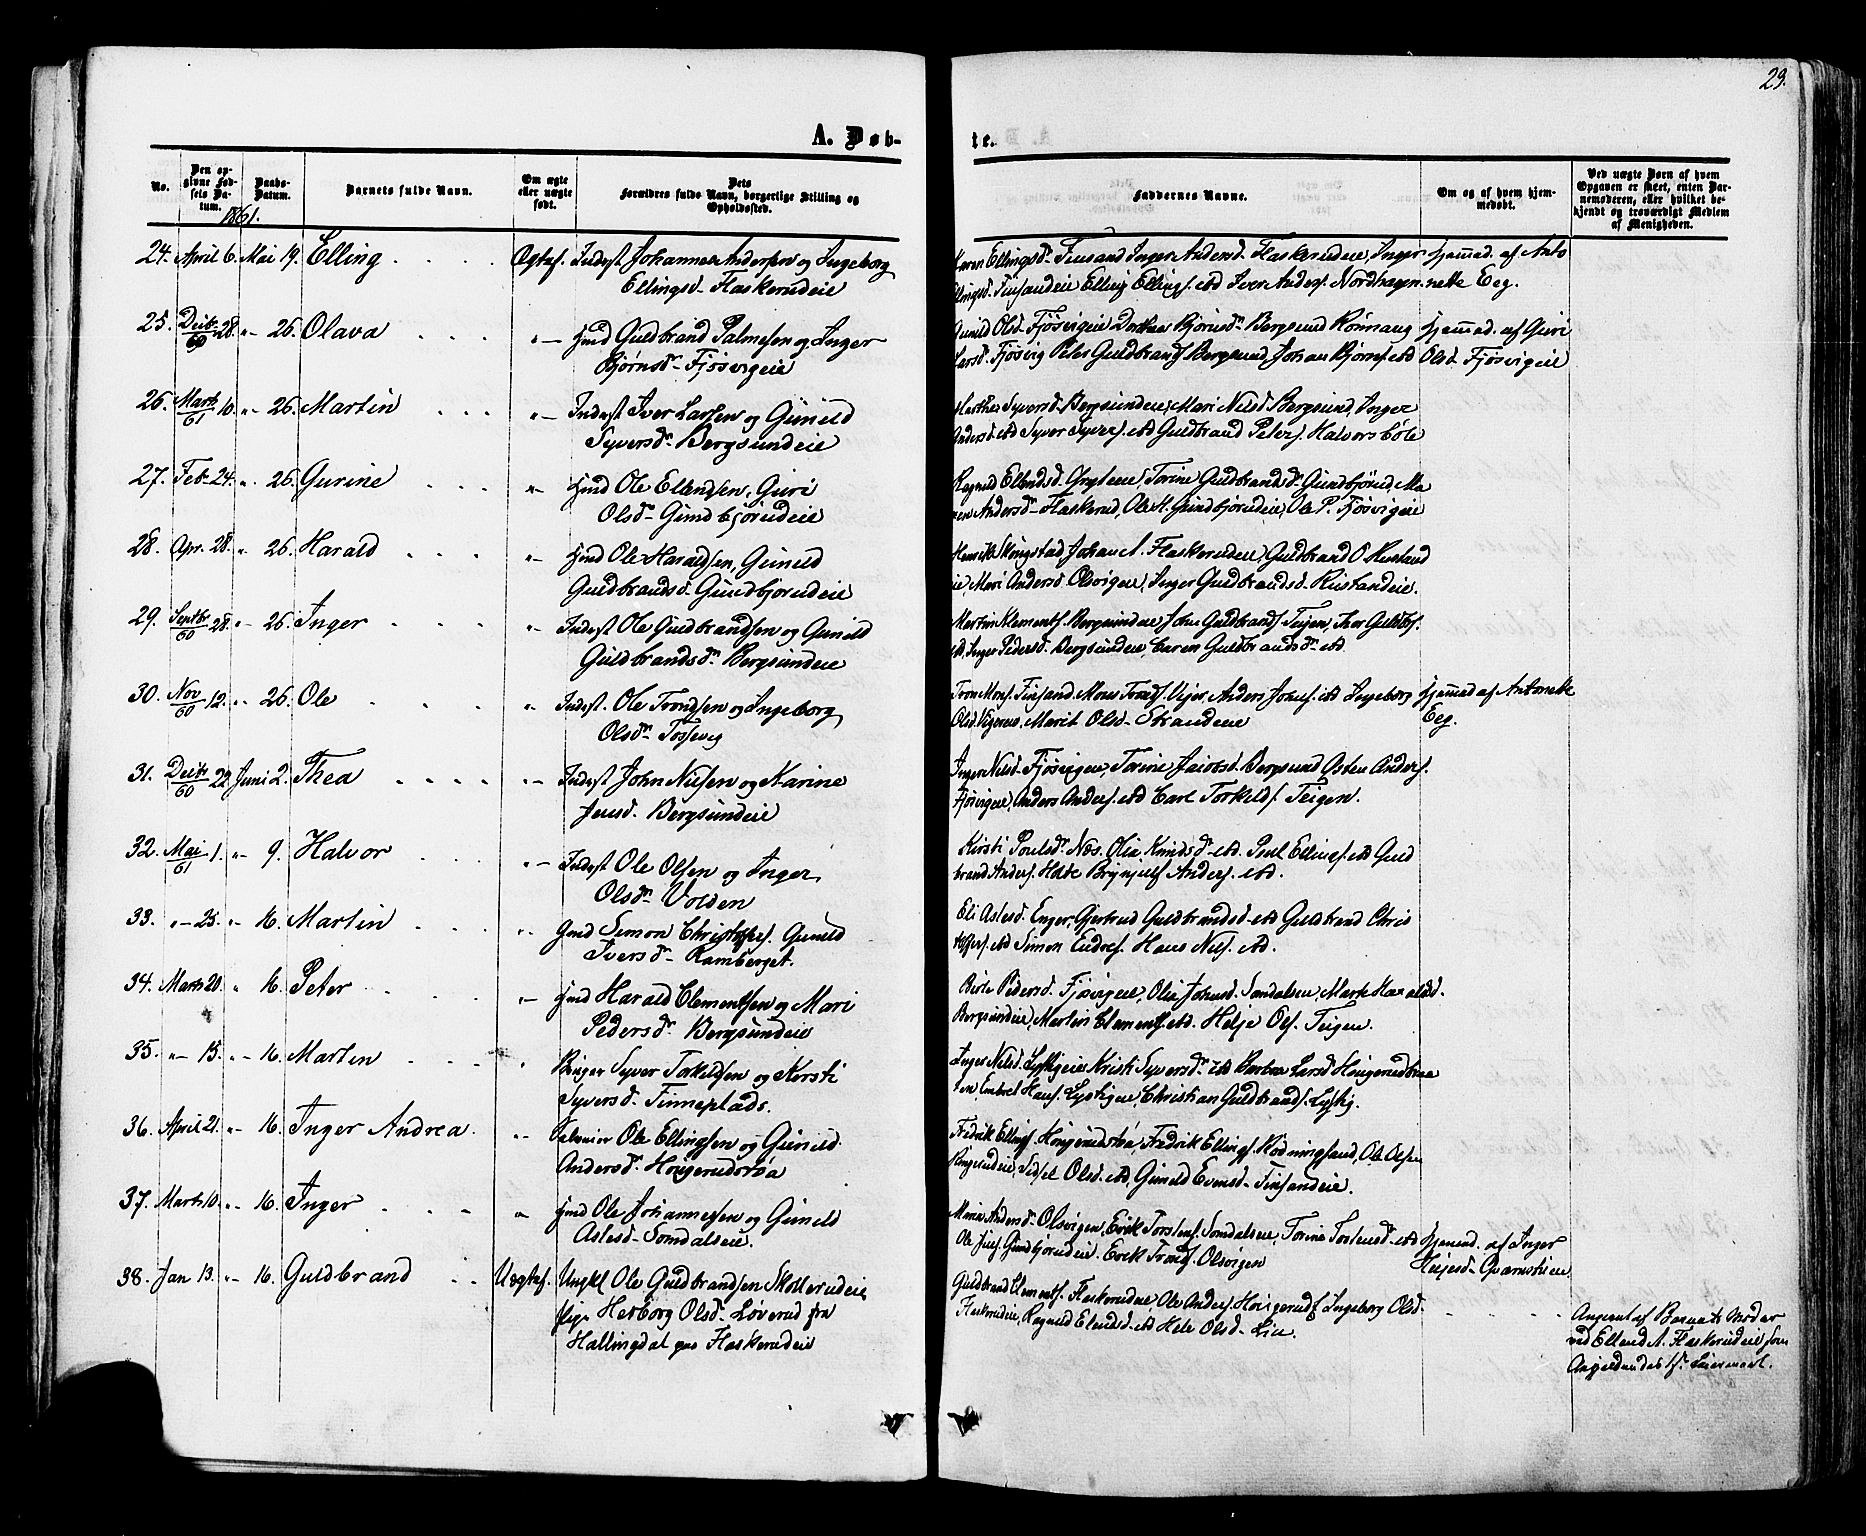 23.
A. Døb-
te.
No.
Den opgivne Fødsels Datum.
Daabs-Datum.
Barnets fulde Navn.
Om ægte eller uægte født.
Dets Forældres fulde Navn, borgerlige Stilling og Opholdssted.
Faddernes Navne.
Om og af hvem hjemmedøbt.
Ved uægte Børn af hvem Opgaven er skeet, enten Barnemoderen, eller hvilket bekjendt og troværdigt Medlem af Menigheden.
1861.
24. April 6. Mai 19. Elling Ægtef. Inderst Johannes Andersen og Ingeborg
Ellingsd. Flaskerudeie
Karen Ellingsd. Finsand Inger Andersd. Flaskerudeie, Inger
Ellingsd. Finsandeie Elling Ellings. ibd Iver Anders. Nordhagen
hjemmed. af Anto
nette Eeg.
25. Decbr 60 28. " 26. Olava "- Hmd Guldbrand Palmesen og Inger
Bjørnsd. Fjøsvigeie
Gunild Olsd. Fjøsvigeie Dorthea Bjørnsd. Bergsund Rønnaug
Larsd. Fjøsvig Peter Guldbrands. Bergsund, Johan Bjørns. ibd
hjemmed. af Guri
Olsd. Fjøsvigeie
26. Marts 61 10. " 26. Martin "- Inderst Iver Larsen og Gunild
Syversd. Bergsundeie
Marthe Syversd. Bergsundeie, Mari Nilsd Bergsund, Inger
Andersd. ibd Syver Syvers. ibd Guldbrand Peters. Halvorsbøle
27. Feb. 24. " 26. Gurine "- Hmd Ole Ellendsen, Guri
Olsd. Gundbjørudeie
Ragnild Ellendsd. Torine Guldbrandsd. Gundbjørud, Ma
ren Andersd. Flaskerud, Ole H. Gundbjørudeie, Ole P. Fjøsvigeie
28. Apr. 28. " 26. Harald "- Hmd Ole Haraldsen, Gunild
Guldbrandsd. Gundbjørudeie
Henrik Kongstad Johan A. Flaskerudeie, Guldbrand O Rustand
eie, Mari Andersd. Olsvigeie, Inger Guldbrandsd. Rustandeie.
29. Septbr 60 28. " 26. Inger "- Inderst Ole Guldbrandsen og Gunild
Guldbrandsd. Bergsundeie
Martin Klements. Bergsundeie, John Guldbrands. Teigen, Thor Guldbs.
ibd, Inger Pedersd. Bergsundeie, Caren Guldbrandsd. ibd
30. Nov 60 12. " 26. Ole " Inderst. Ole Trondsen og Ingeborg
Olsd. Tossevig
Tron Mons. Finsand. Mons Tronds. Anders Johns. ibd Ingeborg
Olsd. Marit Olsd. Strandeie
hjemmed af Antonette
Eeg.
31. Decbr 60 22. Juni 2. Thea "- Inderst John Nilsen og Karine
Jensd. Bergsundeie
Inger Nilsd. Fjøsvigeie, Torine Jacobsd. Bergsund Osten Anders.
Fjøsvigeie, Anders Anders. ibd Carl Torkilds. Teigen.
32. Mai 61 1. " 9. Halvor "- Inderst Ole Olsen og Inger
Olsd. Volden
Kirsti Poulsd. Næs. Olia Knudsd. ibd. Poul Ellings. ibd Guld
brand Anders. Brynjulf Anders. ibd.
33. "- 25. " 16. Martin "- Gmd Simon Christophers. Gunild
Iversd. Ramberget.
Eli Aslesd. Enger, Gjertrud Guldbrandsd. ibd Guldbrand Chris
tophers. ibd Simon Endres. Hans Nils. ibd.
34. Marts 20. " 16. Peter "- Hmd Harald Clementsen og Mari
Pedersd. Bergsundeie
Birte Pedersd. Fjøsvigeie, Olia Johnsd. Sandalseie, Marte Haraldsd.
Bergsundeie, Martin Clements. ibd. Helje Ols. Teigen.
35. "- 15. "- 16. Martin " Bruger Syver Torkildsen og Kirsti
Syversd. Finneplads.
Inger Nilsd. Kristi Syversd. ibd Barbra Larsd Hougerudbraa
ten Embret Hans. Lystigeie, Christian Guldbrands. Lystig.
36. April 21. "- 16. Inger Andrea. "- Selveier Ole Ellingsen og Gunild
Andersd. Hougerudsraa
Fredrik Ellings. Hougerudsraa, Fredrik Ellings. Kodningsand, Ole Olsen
Ringerudeie, Sidsel Olsd. ibd, Gunild Evensd. Finsandeie.
37. Marts 10. "- 16. Inger " Hmd Ole Johannessen og Gunild
Aslesd. Somdalseie.
Maria Andersd. Olsvigeie, Erik Torstens. Somdalseie, Torine Torstensd. ibd
Ole Gundbjørudeie. Erik Tronds. Olsvigen
hjemmed. af Inger
38. Jan 13. "- 16. Guldbrand Uægtef. Ungkl Ole Guldbrandsen Skollerudeie
Pige Herborg Olsd. Løverud fra
Hallingdal paa Flaskerudeie
Guldbrand Clements. Flaskerudeie, Ole Anders. Hougerud, Ingeborg Olsd.
Flaskerudeie, Ragnild Elendsd. ibd Hele Olsd. Lie.
Angivet af Barnets Moder
ved Ellend A. Flaskerudeie som